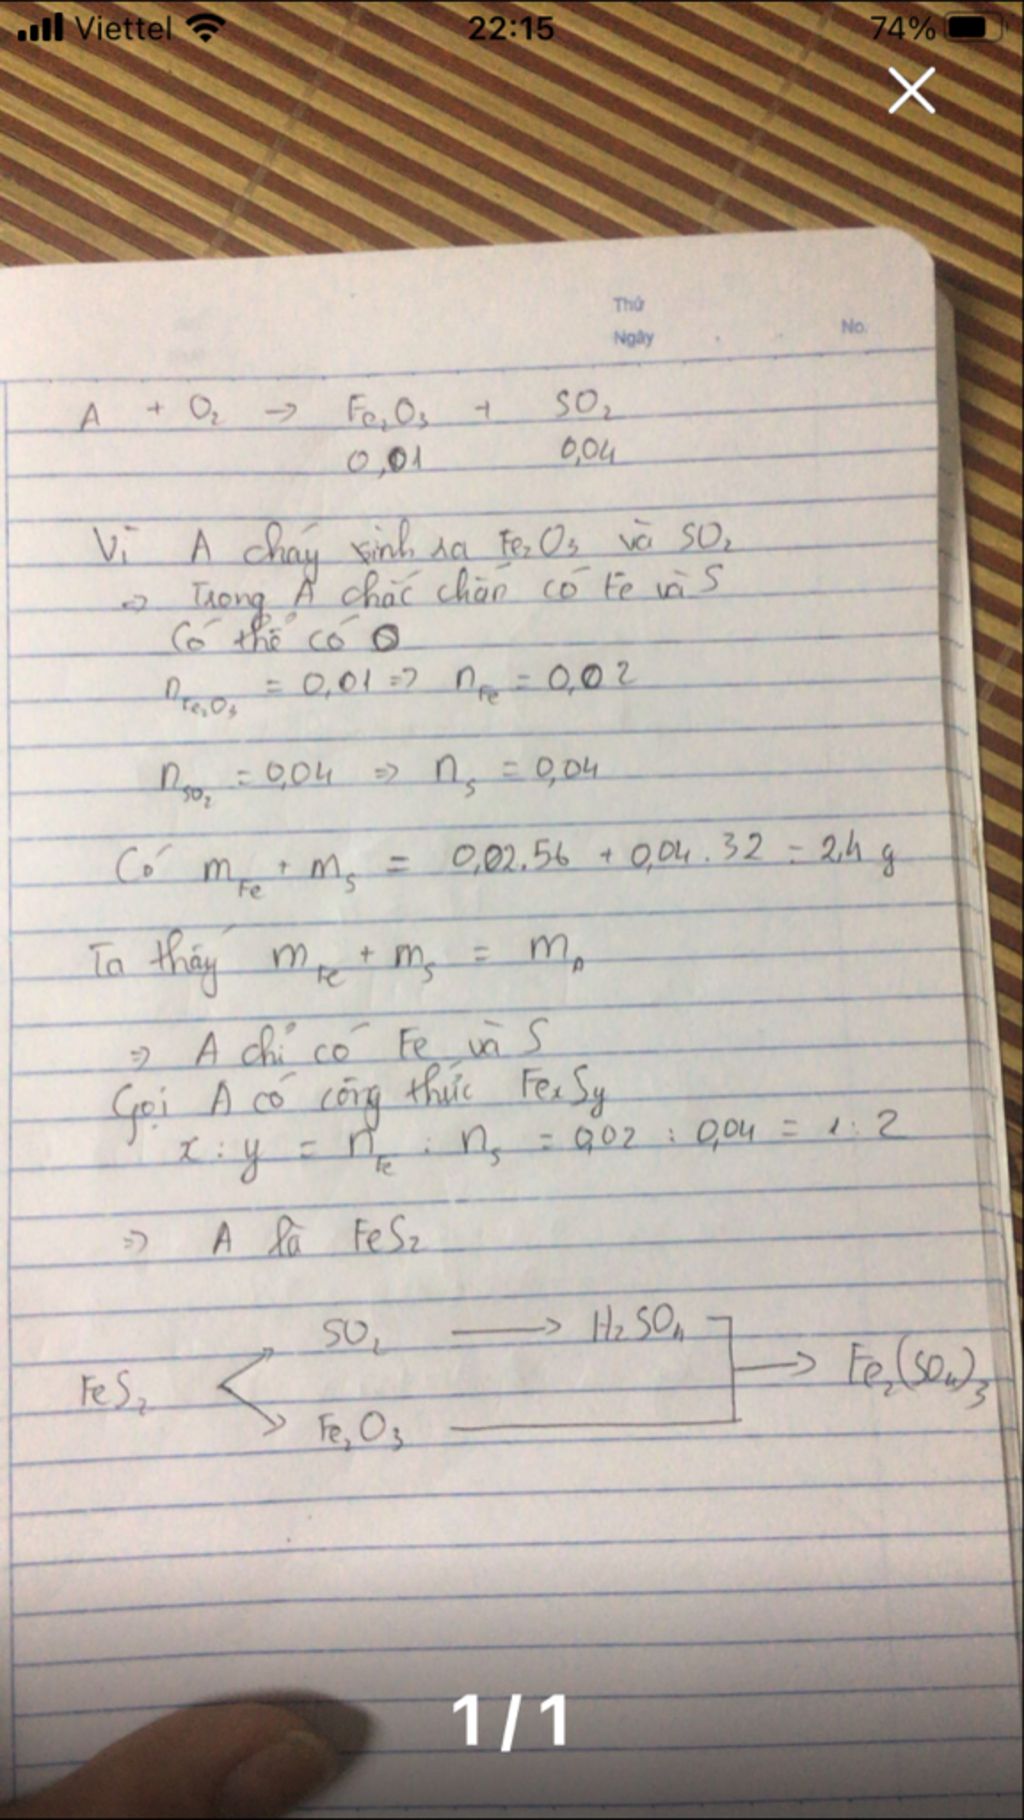 Viettel 22:15 74%
Thứ
Ngày No.
A + O₂ → Fe₂O₃ + SO₂
0,01 0,04
Vì A cháy sinh ra Fe₂O₃ và SO₂
⇒ Trong A chắc chắn có Fe và S
Có thể có O
n_Fe₂O₃ = 0,01 ⇒ n_Fe = 0,02
n_SO₂ = 0,04 ⇒ n_S = 0,04
Có m_Fe + m_S = 0,02.56 + 0,04.32 = 2,4 g
Ta thấy m_Fe + m_S = m_A
⇒ A chỉ có Fe và S
Gọi A có công thức FexSy
x : y = n_Fe : n_S = 0,02 : 0,04 = 1:2
⇒ A là FeS₂
SO₂ → H₂SO₄
FeS₂ → Fe₂(SO₄)₃
Fe₂O₃
1/1